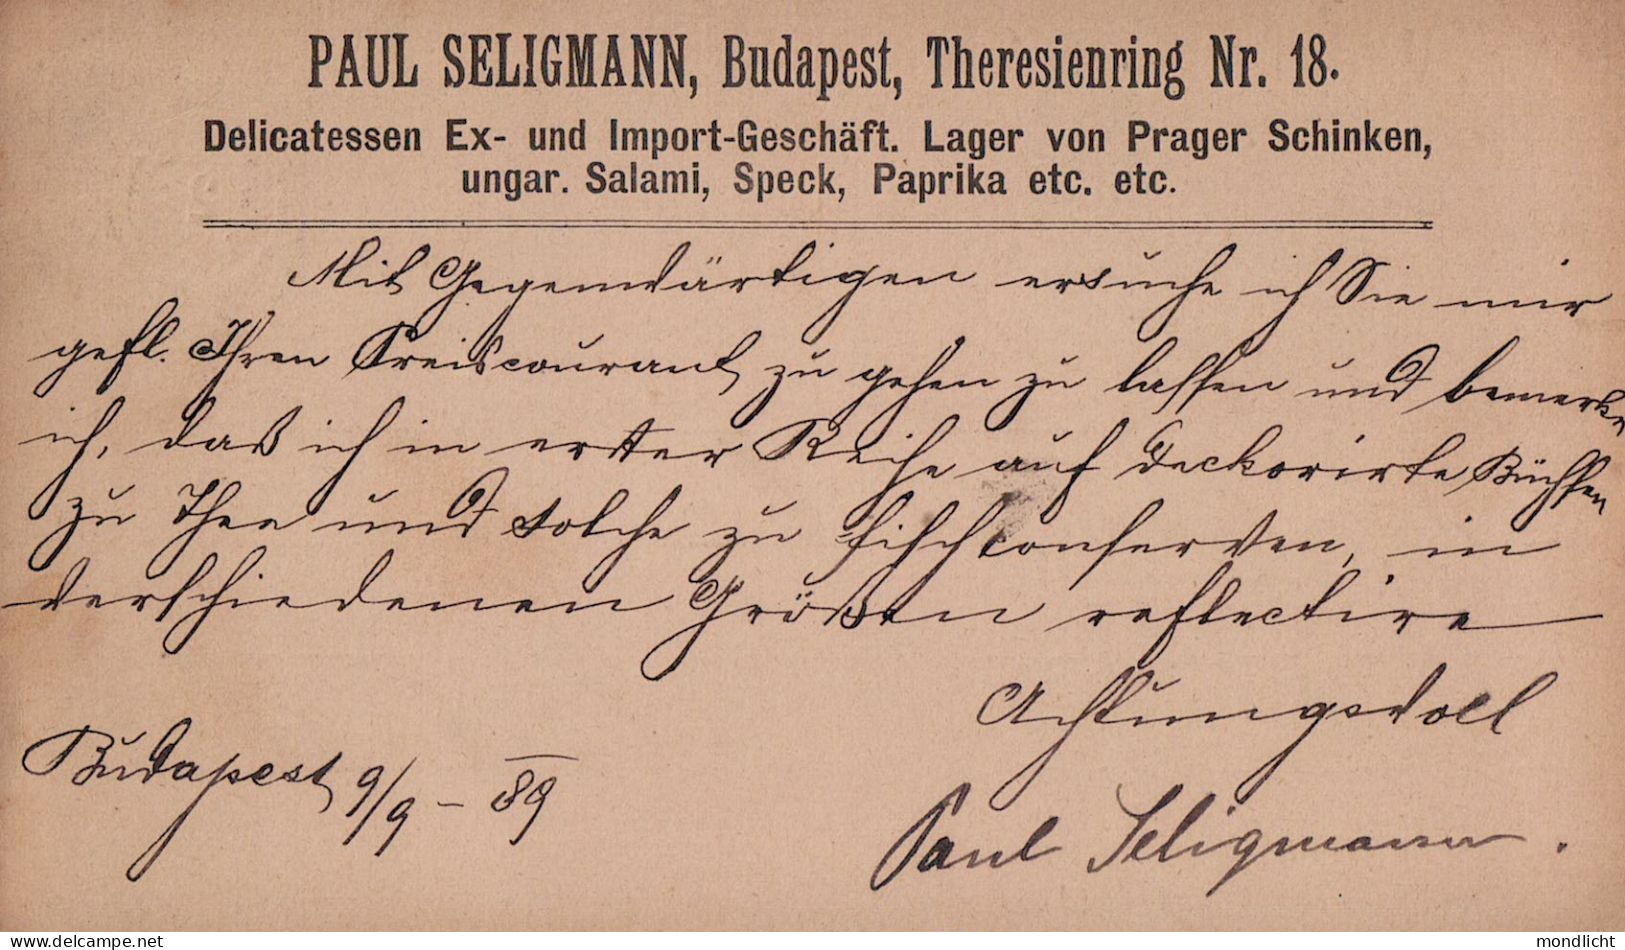 PAUL SELIGMANN, Budapest, Theresienring Nr. 18.
Delicatessen Ex- und Import-Geschäft. Lager von Prager Schinken,
ungar. Salami, Speck, Paprika etc. etc.
Mit Gegenwärtigen ersuche ich Sie mir
gefl. Ihren Preiscourant zu gehen zu lassen und bemerke
ich, daß ich in erster Reihe auf deckorirte Büchsen
zu Thee und solche zu Fischconserven, in
verschiedenen Größen reflectire
Achtungsvoll
Budapest 9/9 – 89
Paul Seligmann.
www.delcampe.net
mondlicht